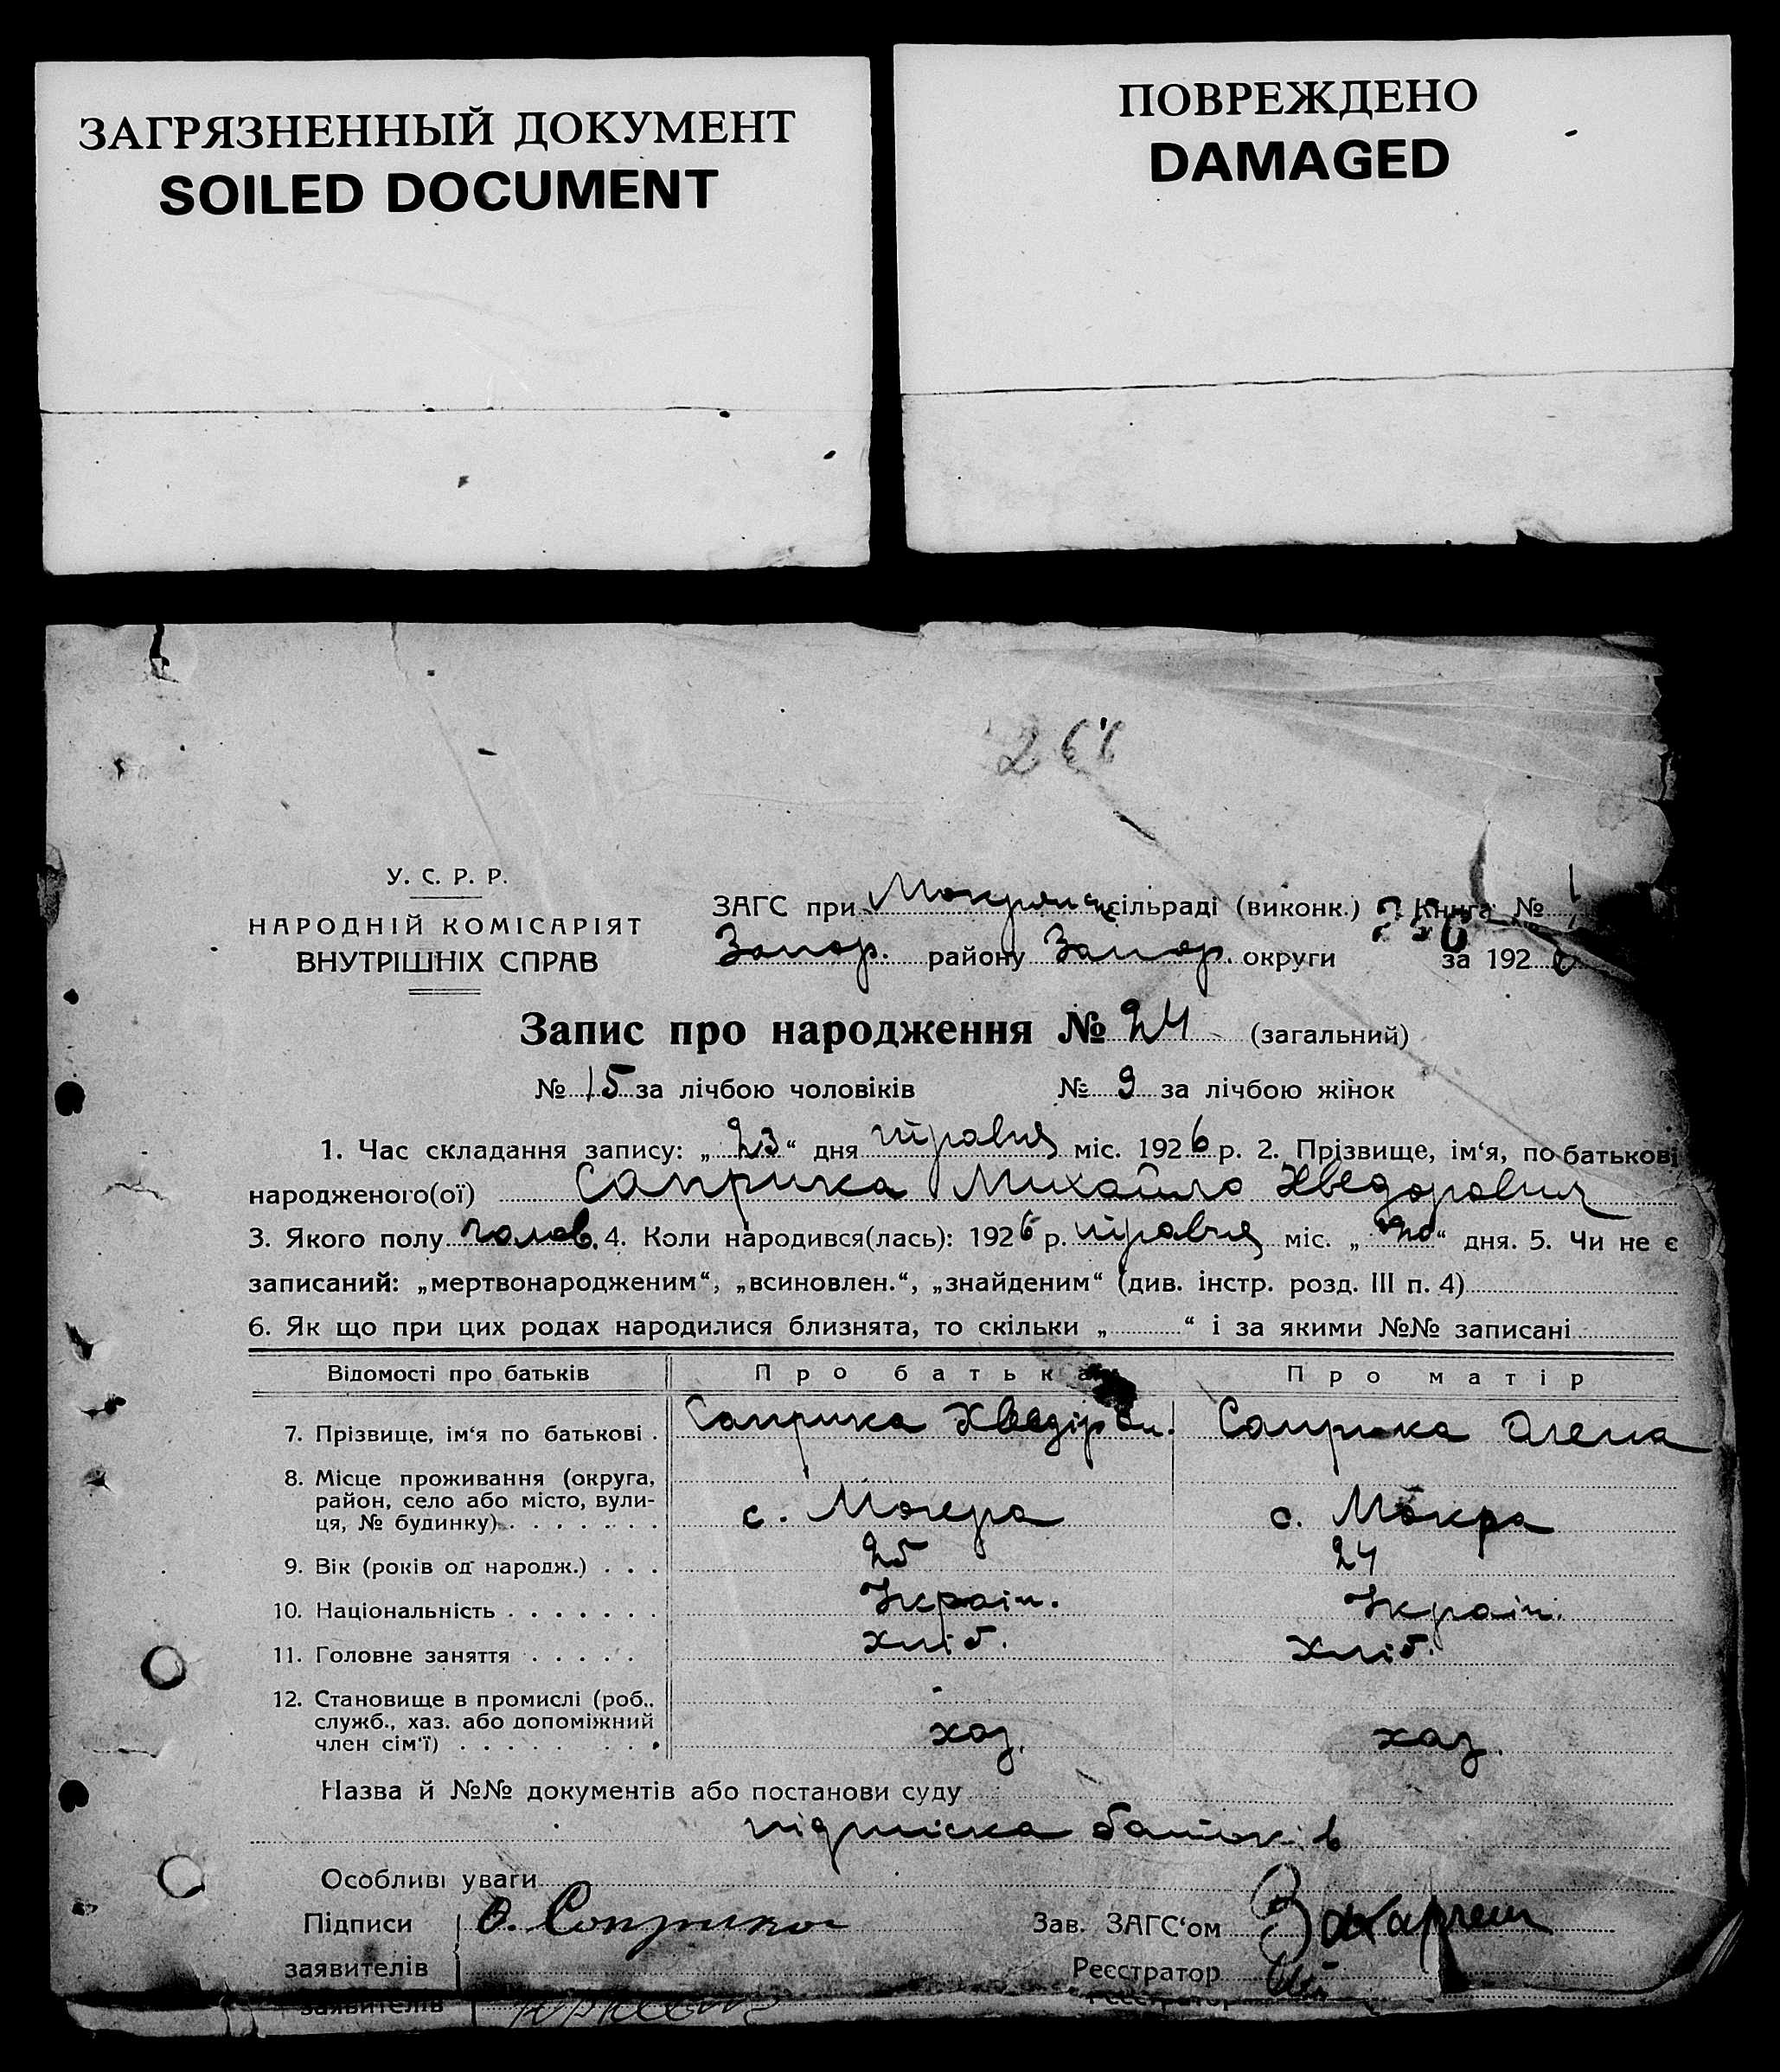 ЗАГРЯЗНЕННЫЙ ДОКУМЕНТ
SOILED DOCUMENT
ПОВРЕЖДЕНО
DAMAGED
У. С. Р. Р.
НАРОДНІЙ КОМІСАРІЯТ
ВНУТРІШНІХ СПРАВ
ЗАГС при Мокрян сільраді (виконк.) Книга №
Запор. району Запор. округи за 1926
Запис про народження № 24 (загальний)
№ 15 за лічбою чоловіків № 9 за лічбою жінок
1. Час складання запису: „23“ дня травня міс. 1926 р. 2. Прізвище, ім‘я, по батькові
народженого(ої) Саприка Михайло Хведорович
3. Якого полу чолов. 4. Коли народився(лась): 1926 р. травня міс. „20“ дня. 5. Чи не є
записаний: „мертвонародженим“, „всиновлен.“, „знайденим“ (див. інстр. розд. III п. 4)
6. Як що при цих родах народилися близнята, то скільки „ “ і за якими №№ записані
Відомості про батьків Про батька Про матір
7. Прізвище, ім‘я по батькові . Саприка Хведір Саприка Олена
8. Місце проживання (округа,
район, село або місто, вули-
ця, № будинку) . . . . . . . с. Мокра с. Мокра
9. Вік (років од народж.) . . . 25 24
10. Національність . . . . . . . Україн. Україн.
11. Головне заняття . . . . . хліб. хліб.
12. Становище в промислі (роб.,
служб., хаз. або допоміжний
член сім‘ї) . . . . . . . . . хаз. хаз.
Назва й №№ документів або постанови суду
підписка батьків
Особливі уваги
Підписи Саприка Зав. ЗАГС‘ом
заявителів Реєстратор
заявителів